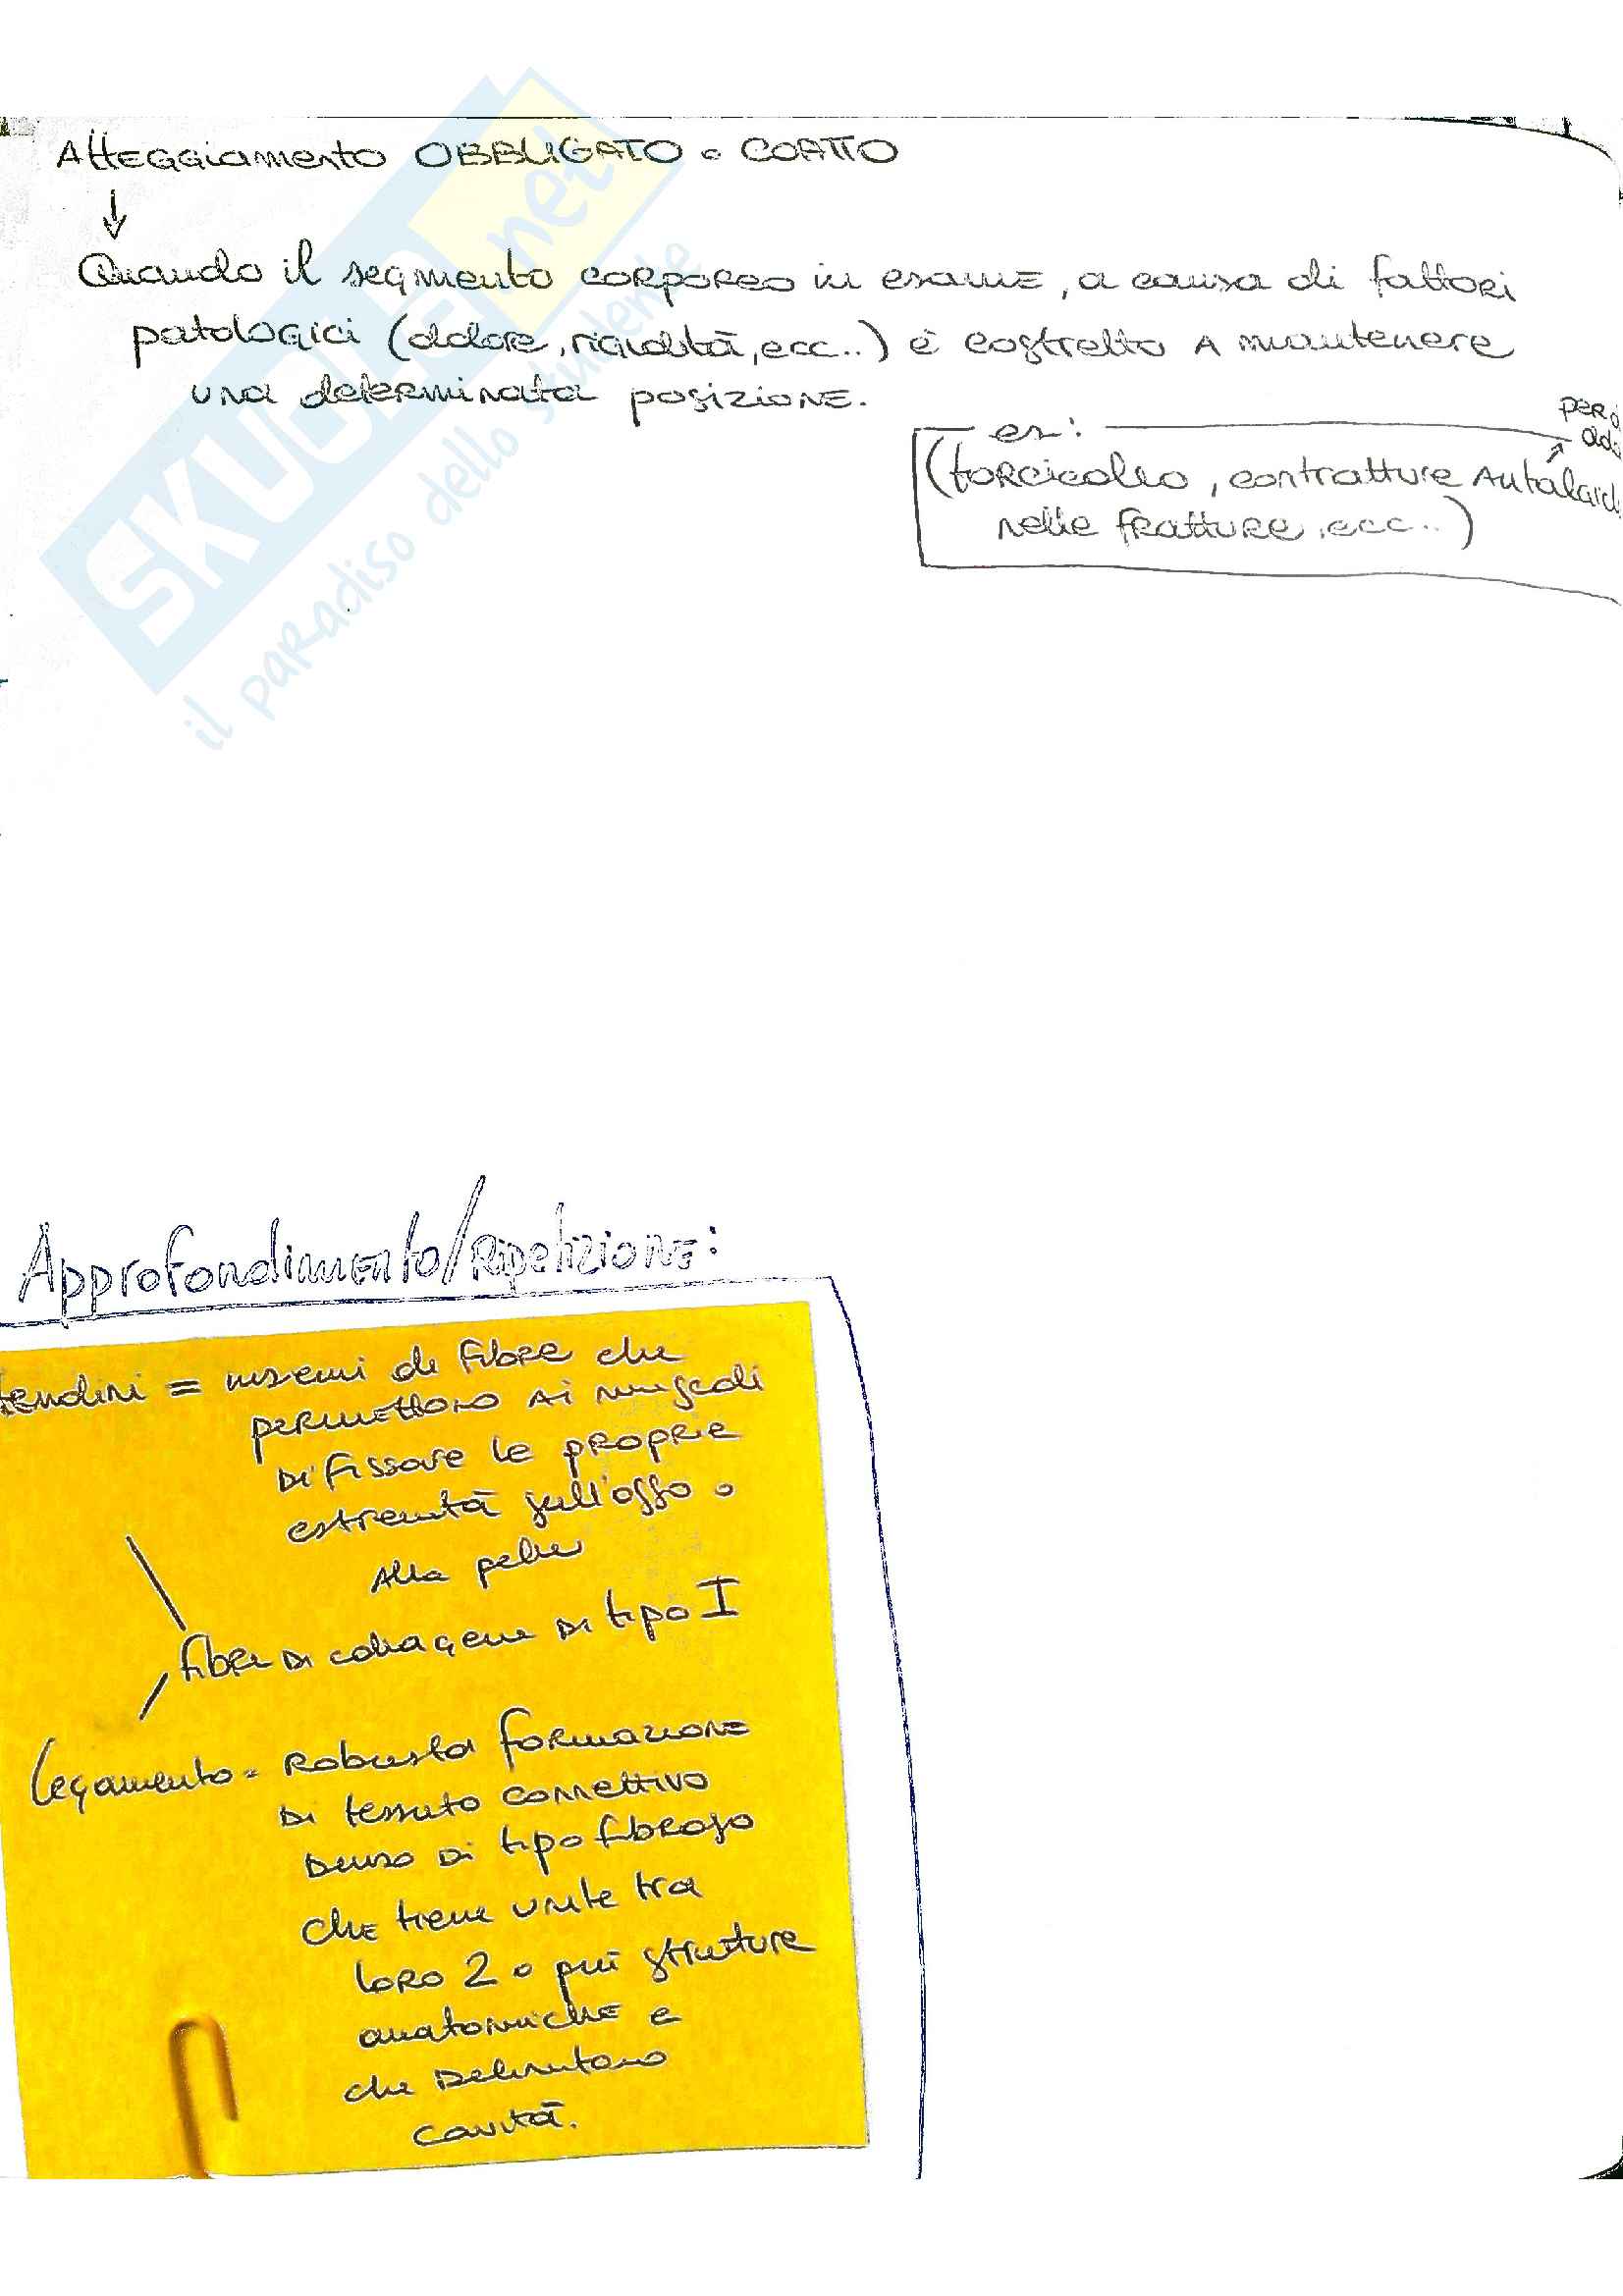 Atteggiamento OBBLIGATO o COATTO
↓
Quando il segmento corporeo in esame, a causa di fattori
patologici (dolore, rigidità, ecc..) è costretto a mantenere
una determinata posizione.
es:
(torcicollo, contratture Antalgich
nelle fratture, ecc..)
SKUOLA.net
il paradiso dello studente
Approfondimento/Ripetizione:
tendini = insiemi di fibre che
permettono ai muscoli
di fissare le proprie
estremità sull'osso o
alla pelle
fibre di collagene di tipo I
legamento = Robusta formazione
di tessuto connettivo
denso di tipo fibroso
che tiene unite tra
loro 2 o più strutture
anatomiche e
che delimitano
cavità.